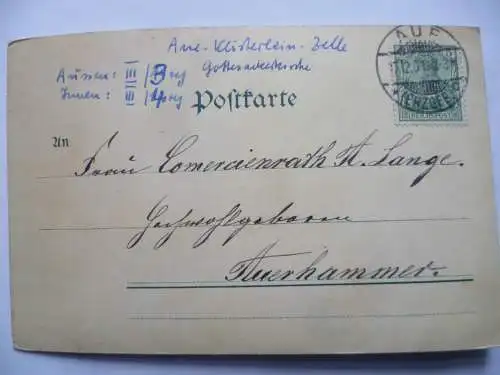 Aue-Klösterlein-Zelle
Gottesackerkirche
Aussen: III /3
Innen: III /4
AUE
(ERZGEB.)
Postkarte
An
Frau Comercienrath H. Lange.
Hochwohlgeboren
Auerhammer.